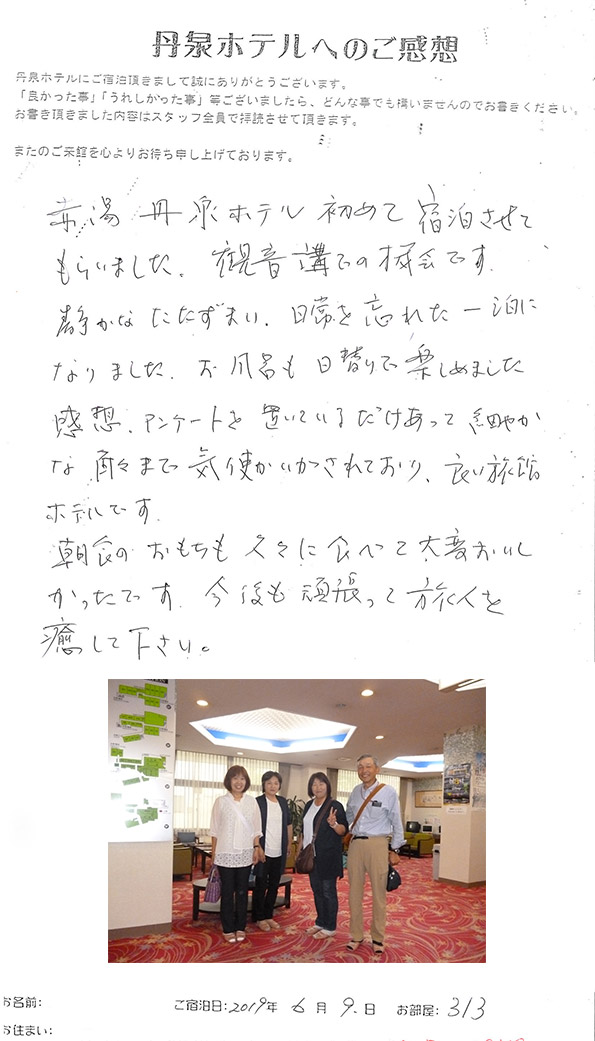 丹泉ホテルへのご感想
丹泉ホテルにご宿泊頂きまして誠にありがとうございます。
「良かった事」「うれしかった事」等ございましたら、どんな事でも構いませんのでお書きください。
お書き頂きました内容はスタッフ全員で拝読させて頂きます。
またのご来館を心よりお待ち申し上げております。
赤湯 丹泉ホテル 初めて 宿泊させて
もらいました。観音講での機会です。
静かなたたずまい、日常を忘れた一泊に
なりました。お風呂も日替りで楽しめました
感想、アンケートを置いているだけあって細やか
な所々まで気使いがされており、良い旅館
ホテルです。
朝食のおもちも久々に食べて大変おいし
かったです。今後も頑張って旅人を
癒して下さい。
お名前:
ご宿泊日:2019年 6月 9.日 お部屋:313
お住まい: